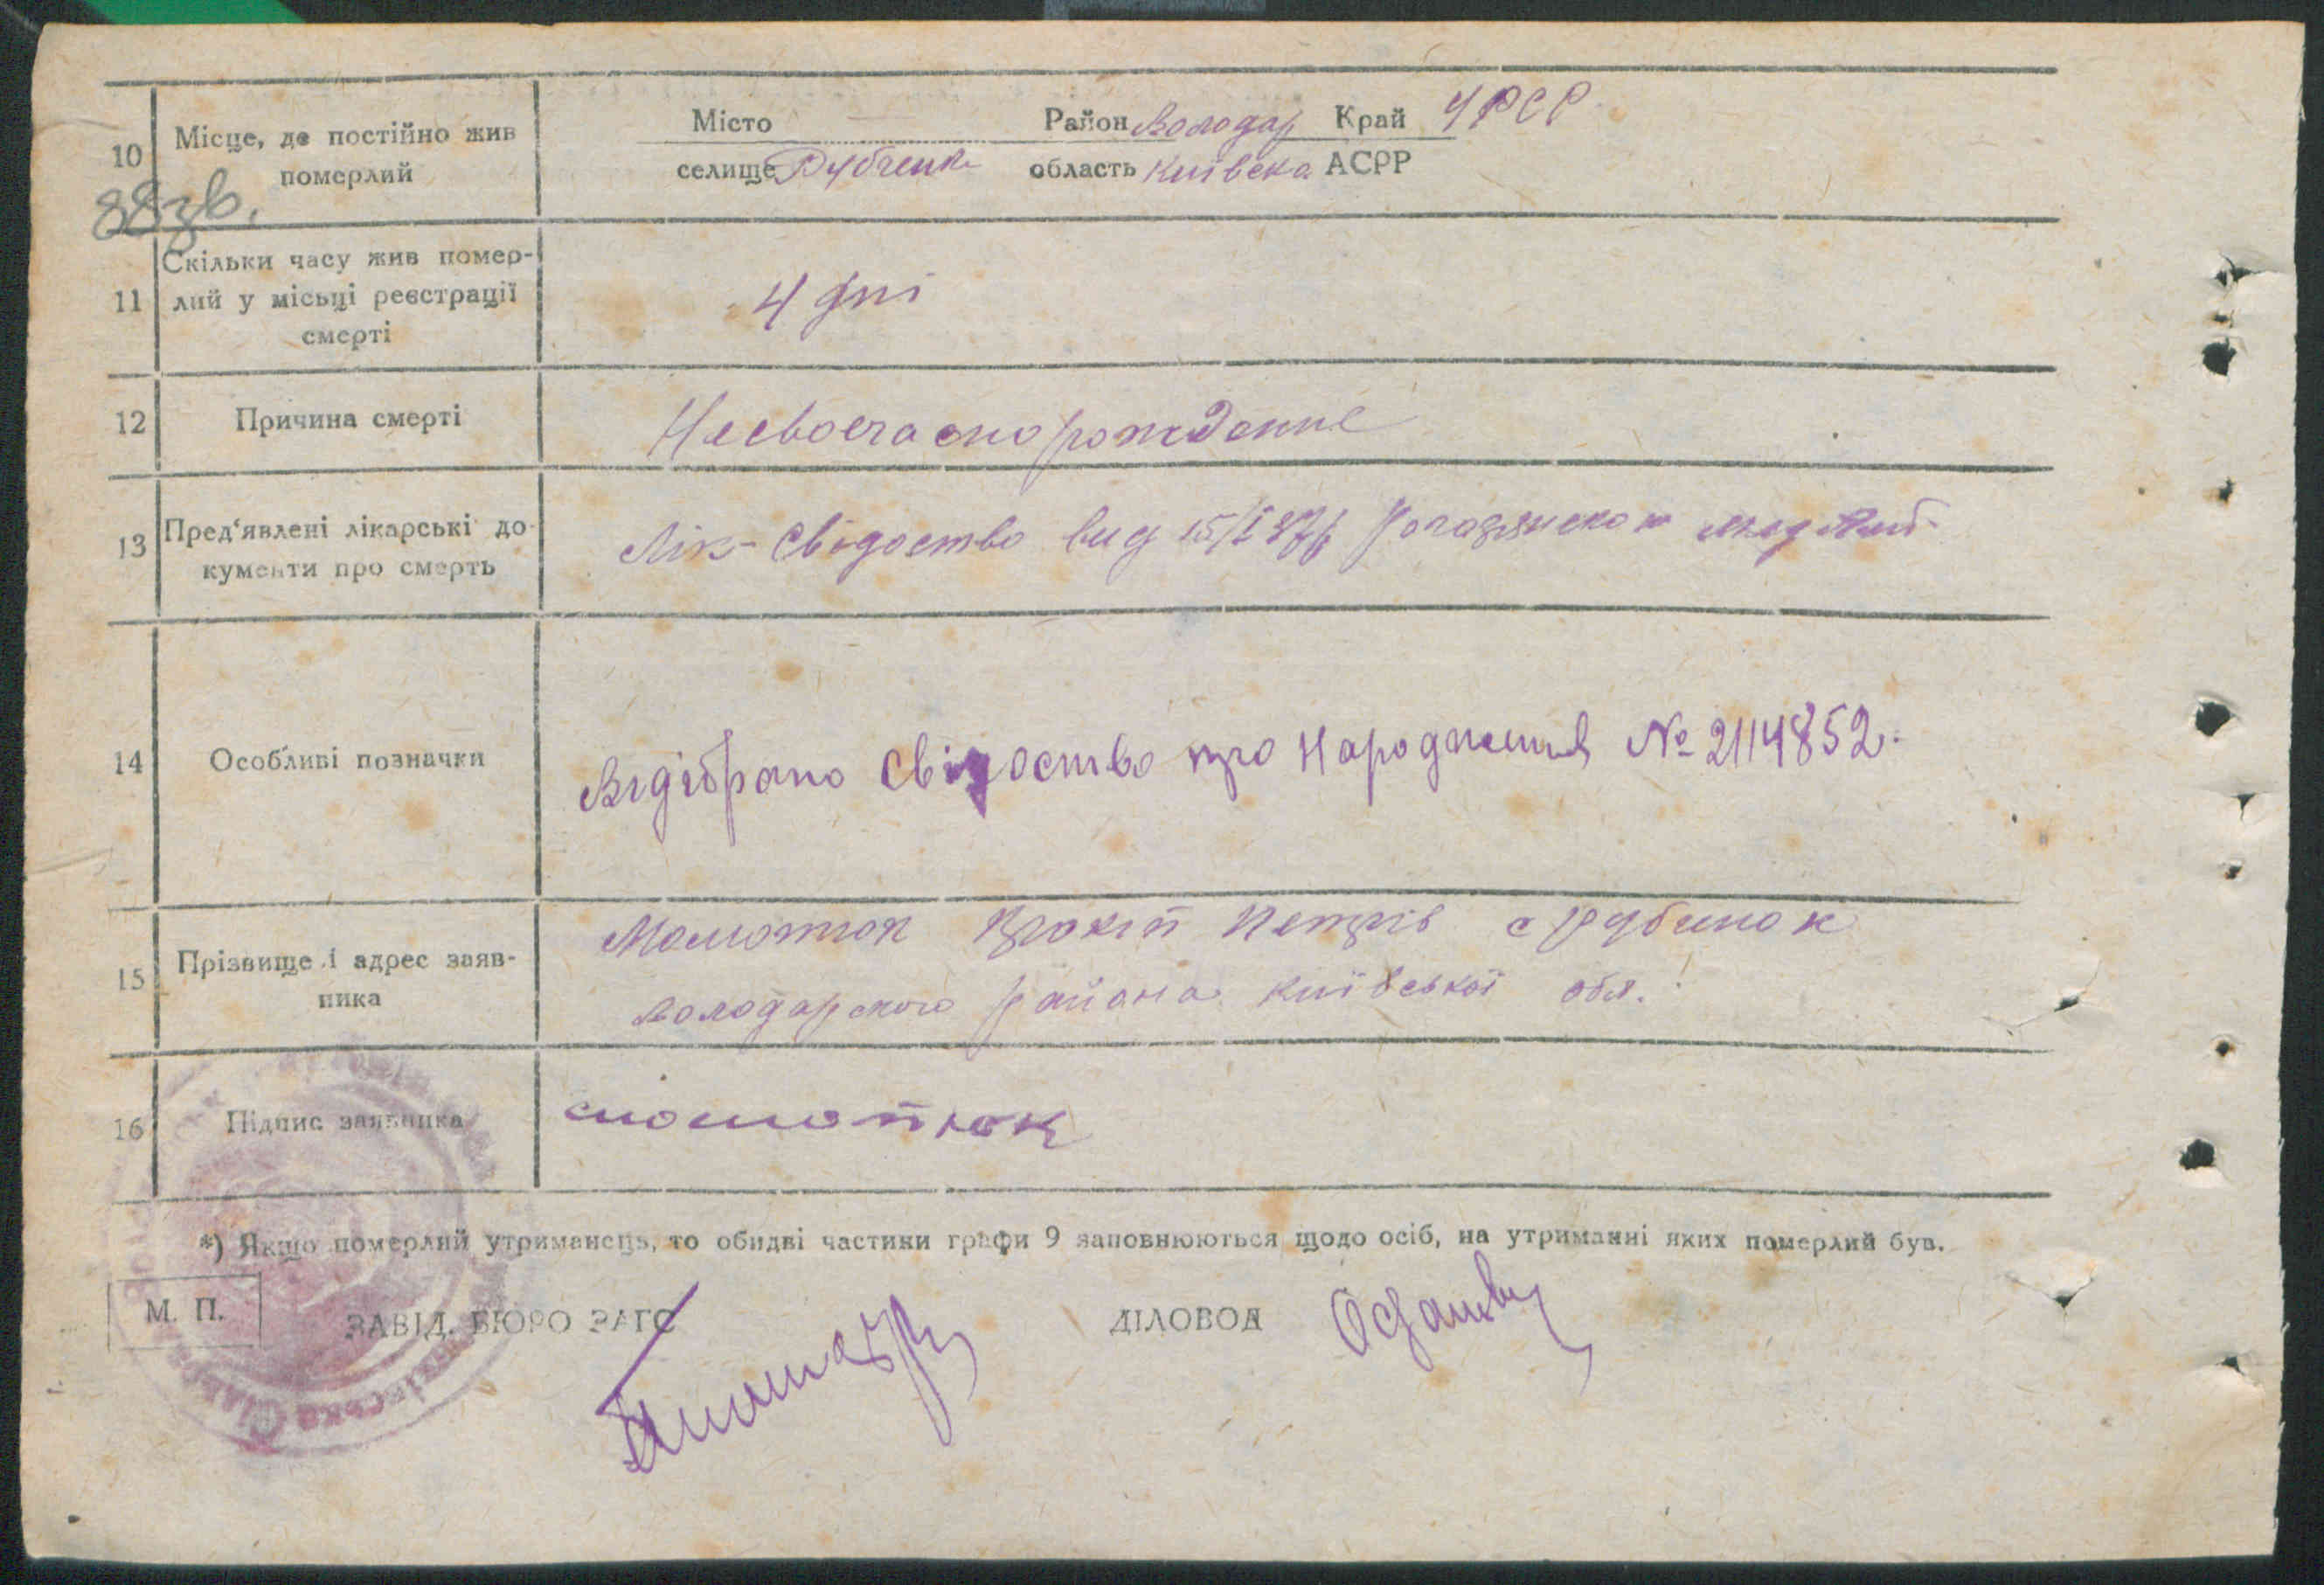 10 Місце, де постійно жив померлий
Місто — Район Володар Край УРСР
селище Рубченки область Київська АСРР
88зв.
11 Скільки часу жив помер-
лий у місьці реєстрації
смерті
4 дні
12 Причина смерті
Несвоєчасно рождение
13 Пред‘явлені лікарські до-
кументи про смерть
Лік-Свідоство вид 15/I 37р
14 Особливі позначки
Відібрано Свідоство про Народження № 2114852.
15 Прізвище і адрес заяв-
ника
Момотюк Прокіп Петрів с Рубченок
Володарского района Київської обл.
16 Підпис заявника
момотюк
*) Якщо померлий утриманець, то обидві частини графи 9 заповнюються щодо осіб, на утриманні яких померлий був.
М. П.
ЗАВІД. БЮРО ЗАГС
ДІЛОВОД